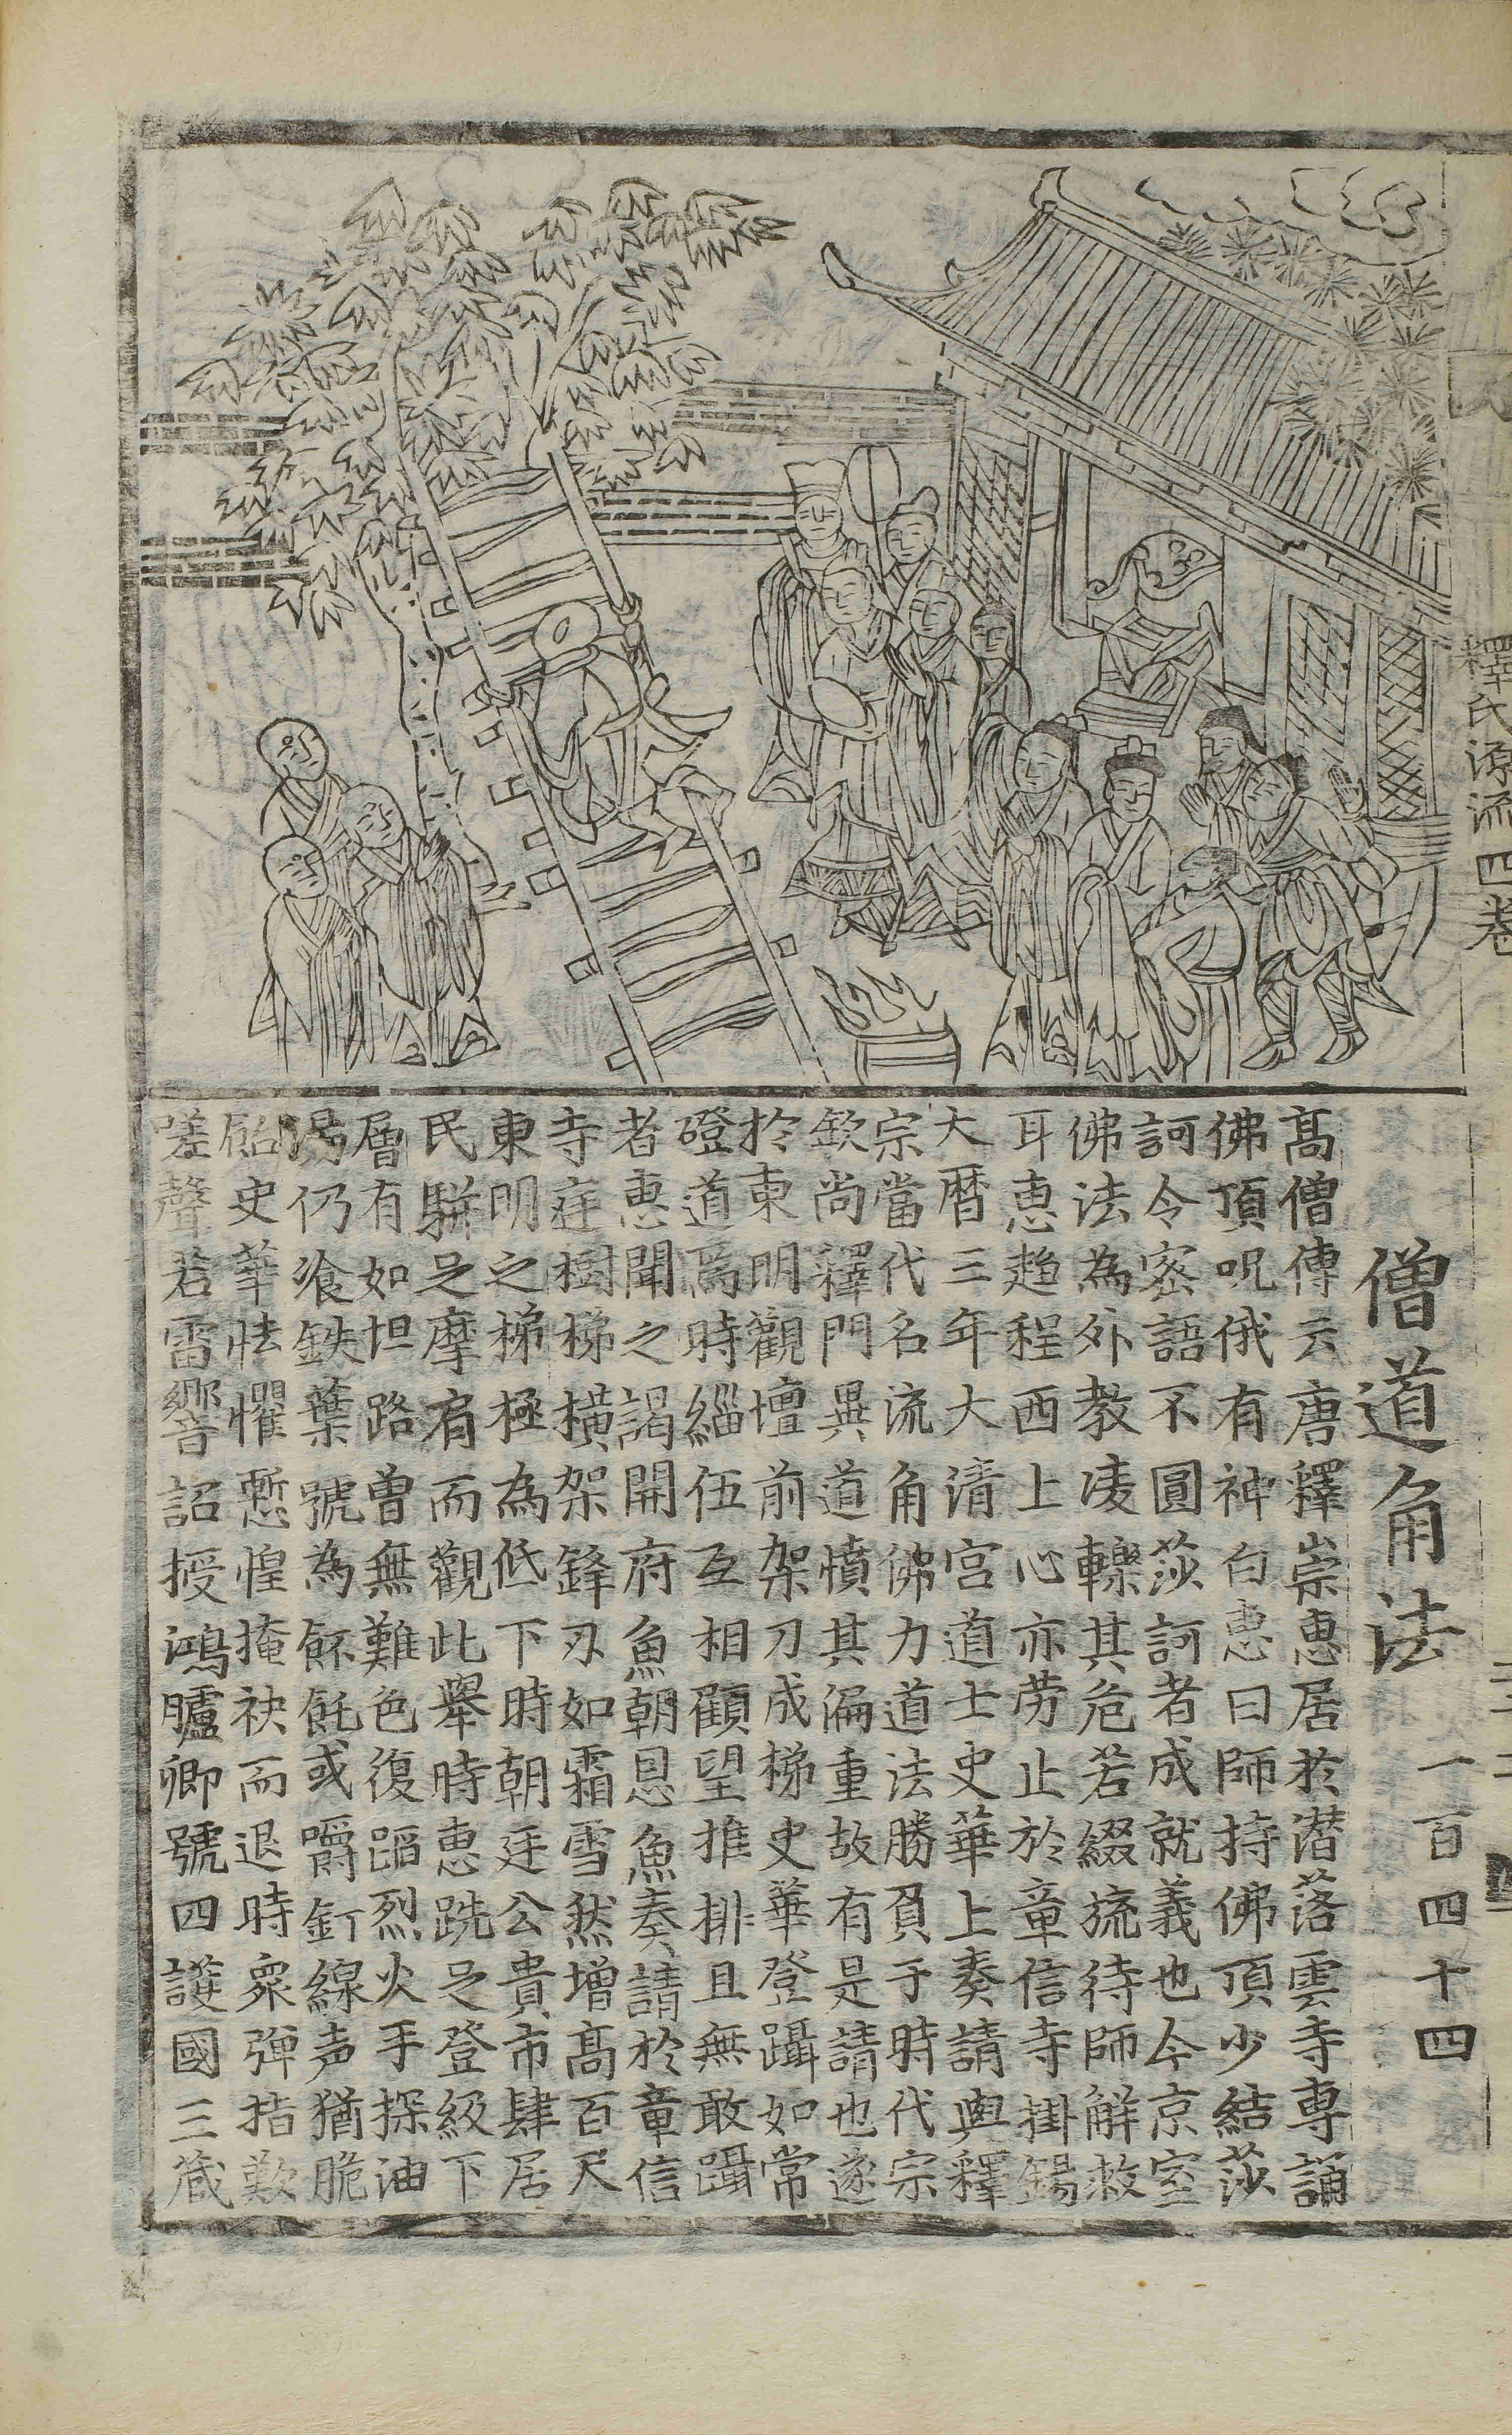 釋氏源流四卷
僧道角法
一百四十四
高僧傳云唐釋崇惠居於潜落雲寺專誦
佛頂呪俄有神白惠曰師持佛頂少結莎
訶令密語不圓莎訶者成就義也今京室
佛法為外教凌轢其危若綴旒待師解救
耳惠趋程西上心亦劳止於章信寺掛錫
大曆三年大清宫道士史華上奏請與釋
宗當代名流角佛力道法勝負于時代宗
欽尚釋門異道憤其偏重故有是請也遂
於東明觀壇前架刀成梯史華登躡如常
磴道爲時緇伍互相顧望推排且無敢躡
者惠聞之謁開府魚朝恩魚奏請於章信
寺庭樹梯横架鋒刃如霜雪然增高百尺
東明之梯極為低下時朝廷公貴市肆居
民駢足摩肩而觀此舉時惠跣足登級下
層有如坦路曽無難色復蹈烈火手探油
湯仍飡鉄葉號為餺飥或嚼釘線声猶脆
飴史華怯懼慙惶掩袂而退時衆彈指歎
嗟聲若雷響詔授鴻臚卿號四護國三藏